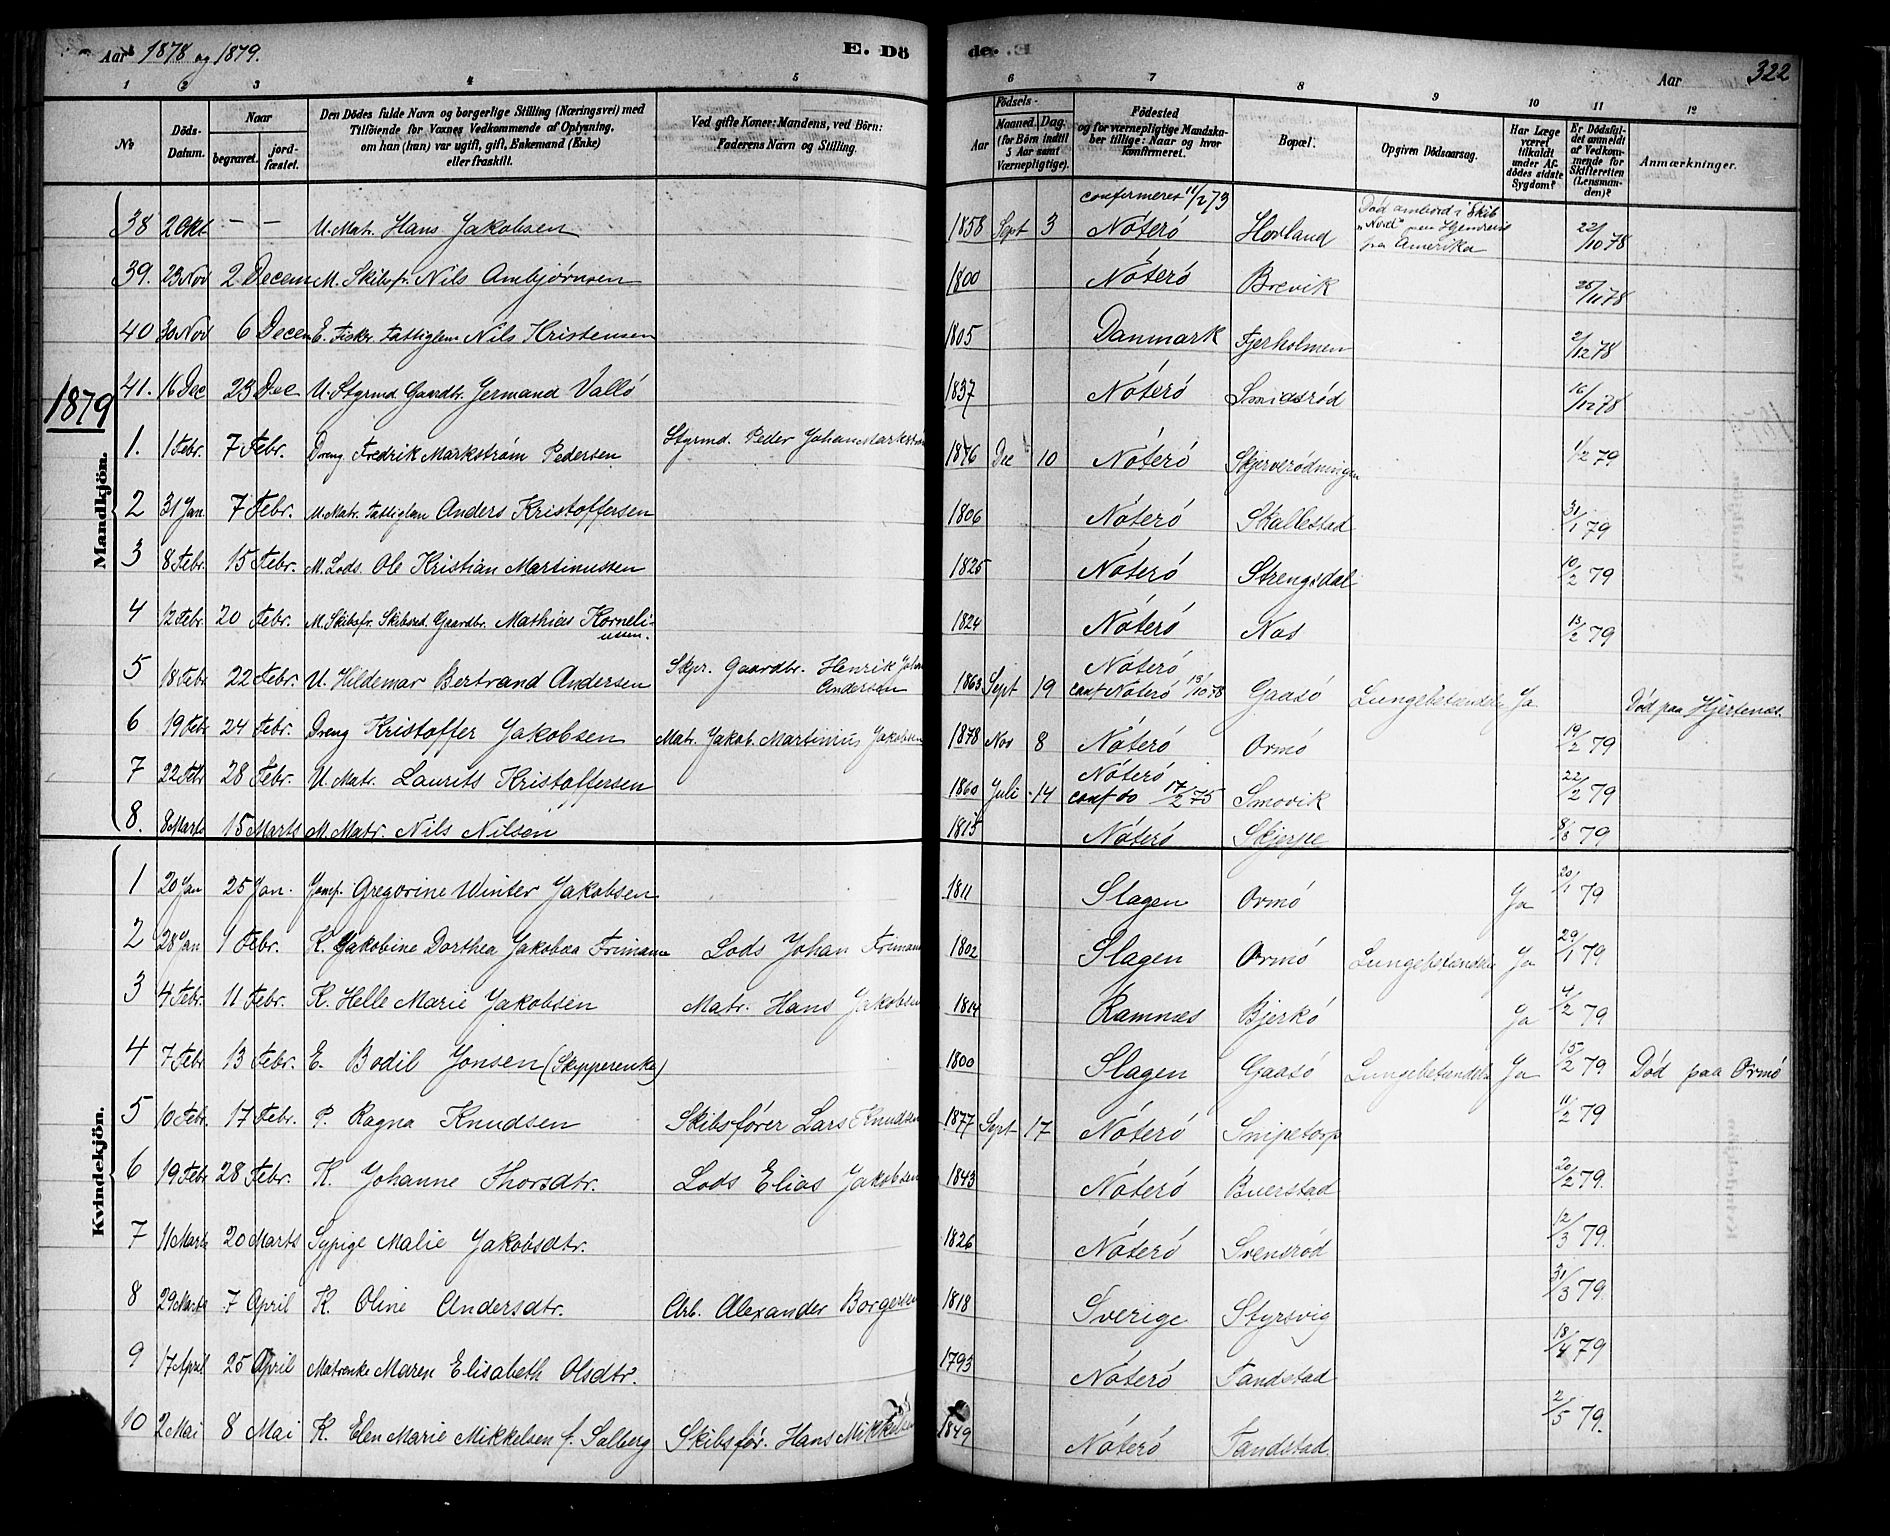 Aar 1878 og 1879. E. Dö de. Aar 322
1 2 3 4 5 6 7 8 9 10 11 12
No Döds-Datum. Naar begravet. jord-fæstet. Den Dödes fulde Navn og borgerlige Stilling (Næringsvei) med Tilföiende for Voxnes Vedkommende af Oplysning, om han (hun) var ugift, gift, Enkemand (Enke) eller fraskilt. Ved gifte Koner: Mandens, ved Börn: Faderens Navn og Stilling. Födsels- Aar Maaned. Dag. (for Börn indtil 5 Aar samt Værnepligtige). Födested og for værnepligtige Mandskaber tillige: Naar og hvor konfirmeret. Bopæl. Opgiven Dödsaarsag. Har Læge været tilkaldt under Afdödes sidste Sygdom? Er Dödsfaldet anmeldt af Vedkommende for Skifteretten (Lensmanden)? Anmærkninger.
Mandkjön.
38 2 Okt — — U. Matr. Hans Jakobsen 1858 Sept 3 confirmeret 11/2 73 Nöterö Hovland Död ombord i Skib "Nord" paa Hjemreis fra Amerika 22/10 78
39. 23 Nov 2 Decem M. Skibsfr. Nils Ambjørnsen 1800 Nöterö Brevik 25/11 78
40 30 Nov 6 Decem E. Fisker Fattiglem Nils Kristensen 1805 Danmark Fjerholmen 2/12 78
41. 16 Dec 23 Dec U. Styrmd Gaardbr. Germand Vallö 1837 Nöterö Smidsröd 16/12 78
1879
1. 1 Febr. 7 Febr. Dreng Fredrik Markström Pedersen Styrmd. Peder Johan Markström 1876 Dec 10 Nöterö Skjerverödningen 1/2 79
2 31 Jan 7 Febr. U. Matr. Fattiglem Anders Kristoffersen 1806 Nöterö Skallestad 31/1 79
3 8 Febr. 15 Febr. M. Lods. Ole Kristian Martinussen 1825 Nöterö Strengsdal 10/2 79
4 12 Febr. 20 Febr. M. Skibsfr. Skibsred. Gaardbr. Mathias Korneliussen. 1824 Nöterö Nes 13/2 79
5 18 Febr 22 Febr. U. Hildemar Bertrand Andersen Skpr. Gaardbr. Henrik Johan Andersen 1863 Sept 19 Nöterö conf Nöterö 13/10 78 Gaasö Lungebetændelse Ja Död paa Hjertenæs.
6 19 Febr 24 Febr. Dreng Kristoffer Jakobsen Matr. Jakob Martinius Jakobsen 1878 Nov 8 Nöterö Ormö 19/2 79
7 22 Febr 28 Febr. U. Matr. Laurits Kristoffersen 1860 Juli 14 Nöterö conf do 17/2 75 Smovik 22/2 79
8. 8 Marts 15 Marts M. Matr. Nils Nilsen 1815 Nöterö Skjerpe 8/3 79
Kvindekjön.
1 20 Jan 25 Jan. Jomf. Gregorine Winter Jakobsen 1811 Slagen Ormö Ja 20/1 79
2 28 Jan 1 Febr. K. Jakobine Dorthea Jakobæa Frimann Lods Johan Frimann 1802 Slagen Ormö Lungebetændelse Ja 29/1 79
3 4 Febr. 11 Febr. K. Helle Marie Jakobsen Matr. Hans Jakobsen 1814 Ramnæs Bjerkö Ja 4/2 79
4 7 Febr 13 Febr. E. Bodil Jonsen (Skipperenke) 1800 Slagen Gaasö Lungebetændelse Ja 15/2 79 Död paa Ormö
5 10 Febr. 17 Febr. P. Ragna Knudsen Skibsförer Lars Knudsen 1877 Sept 17 Nöterö Snipetorp 11/2 79
6 19 Febr 28 Febr. K. Johanne Thorsdtr. Lods Elias Jakobsen 1843 Nöterö Buerstad 20/2 79.
7 11 Marts 20 Marts Sypige Malie Jakobsdtr. 1826 Nöterö Svensröd 12/3 79.
8 29 Marts 7 April K. Oline Andersdtr. Arb. Alexander Borgersen 1818 Sverige Styrsvig 31/3 79.
9 17 April 25 April Matrenke Maren Elisabeth Olsdtr. 1793 Nöterö Tandstad 18/4 79
10 2 Mai 8 Mai K. Elen Marie Mikkelsen f. Solberg Skibsför. Hans Mikkelsen 1849 Nöterö Tandstad. 2/5 79.